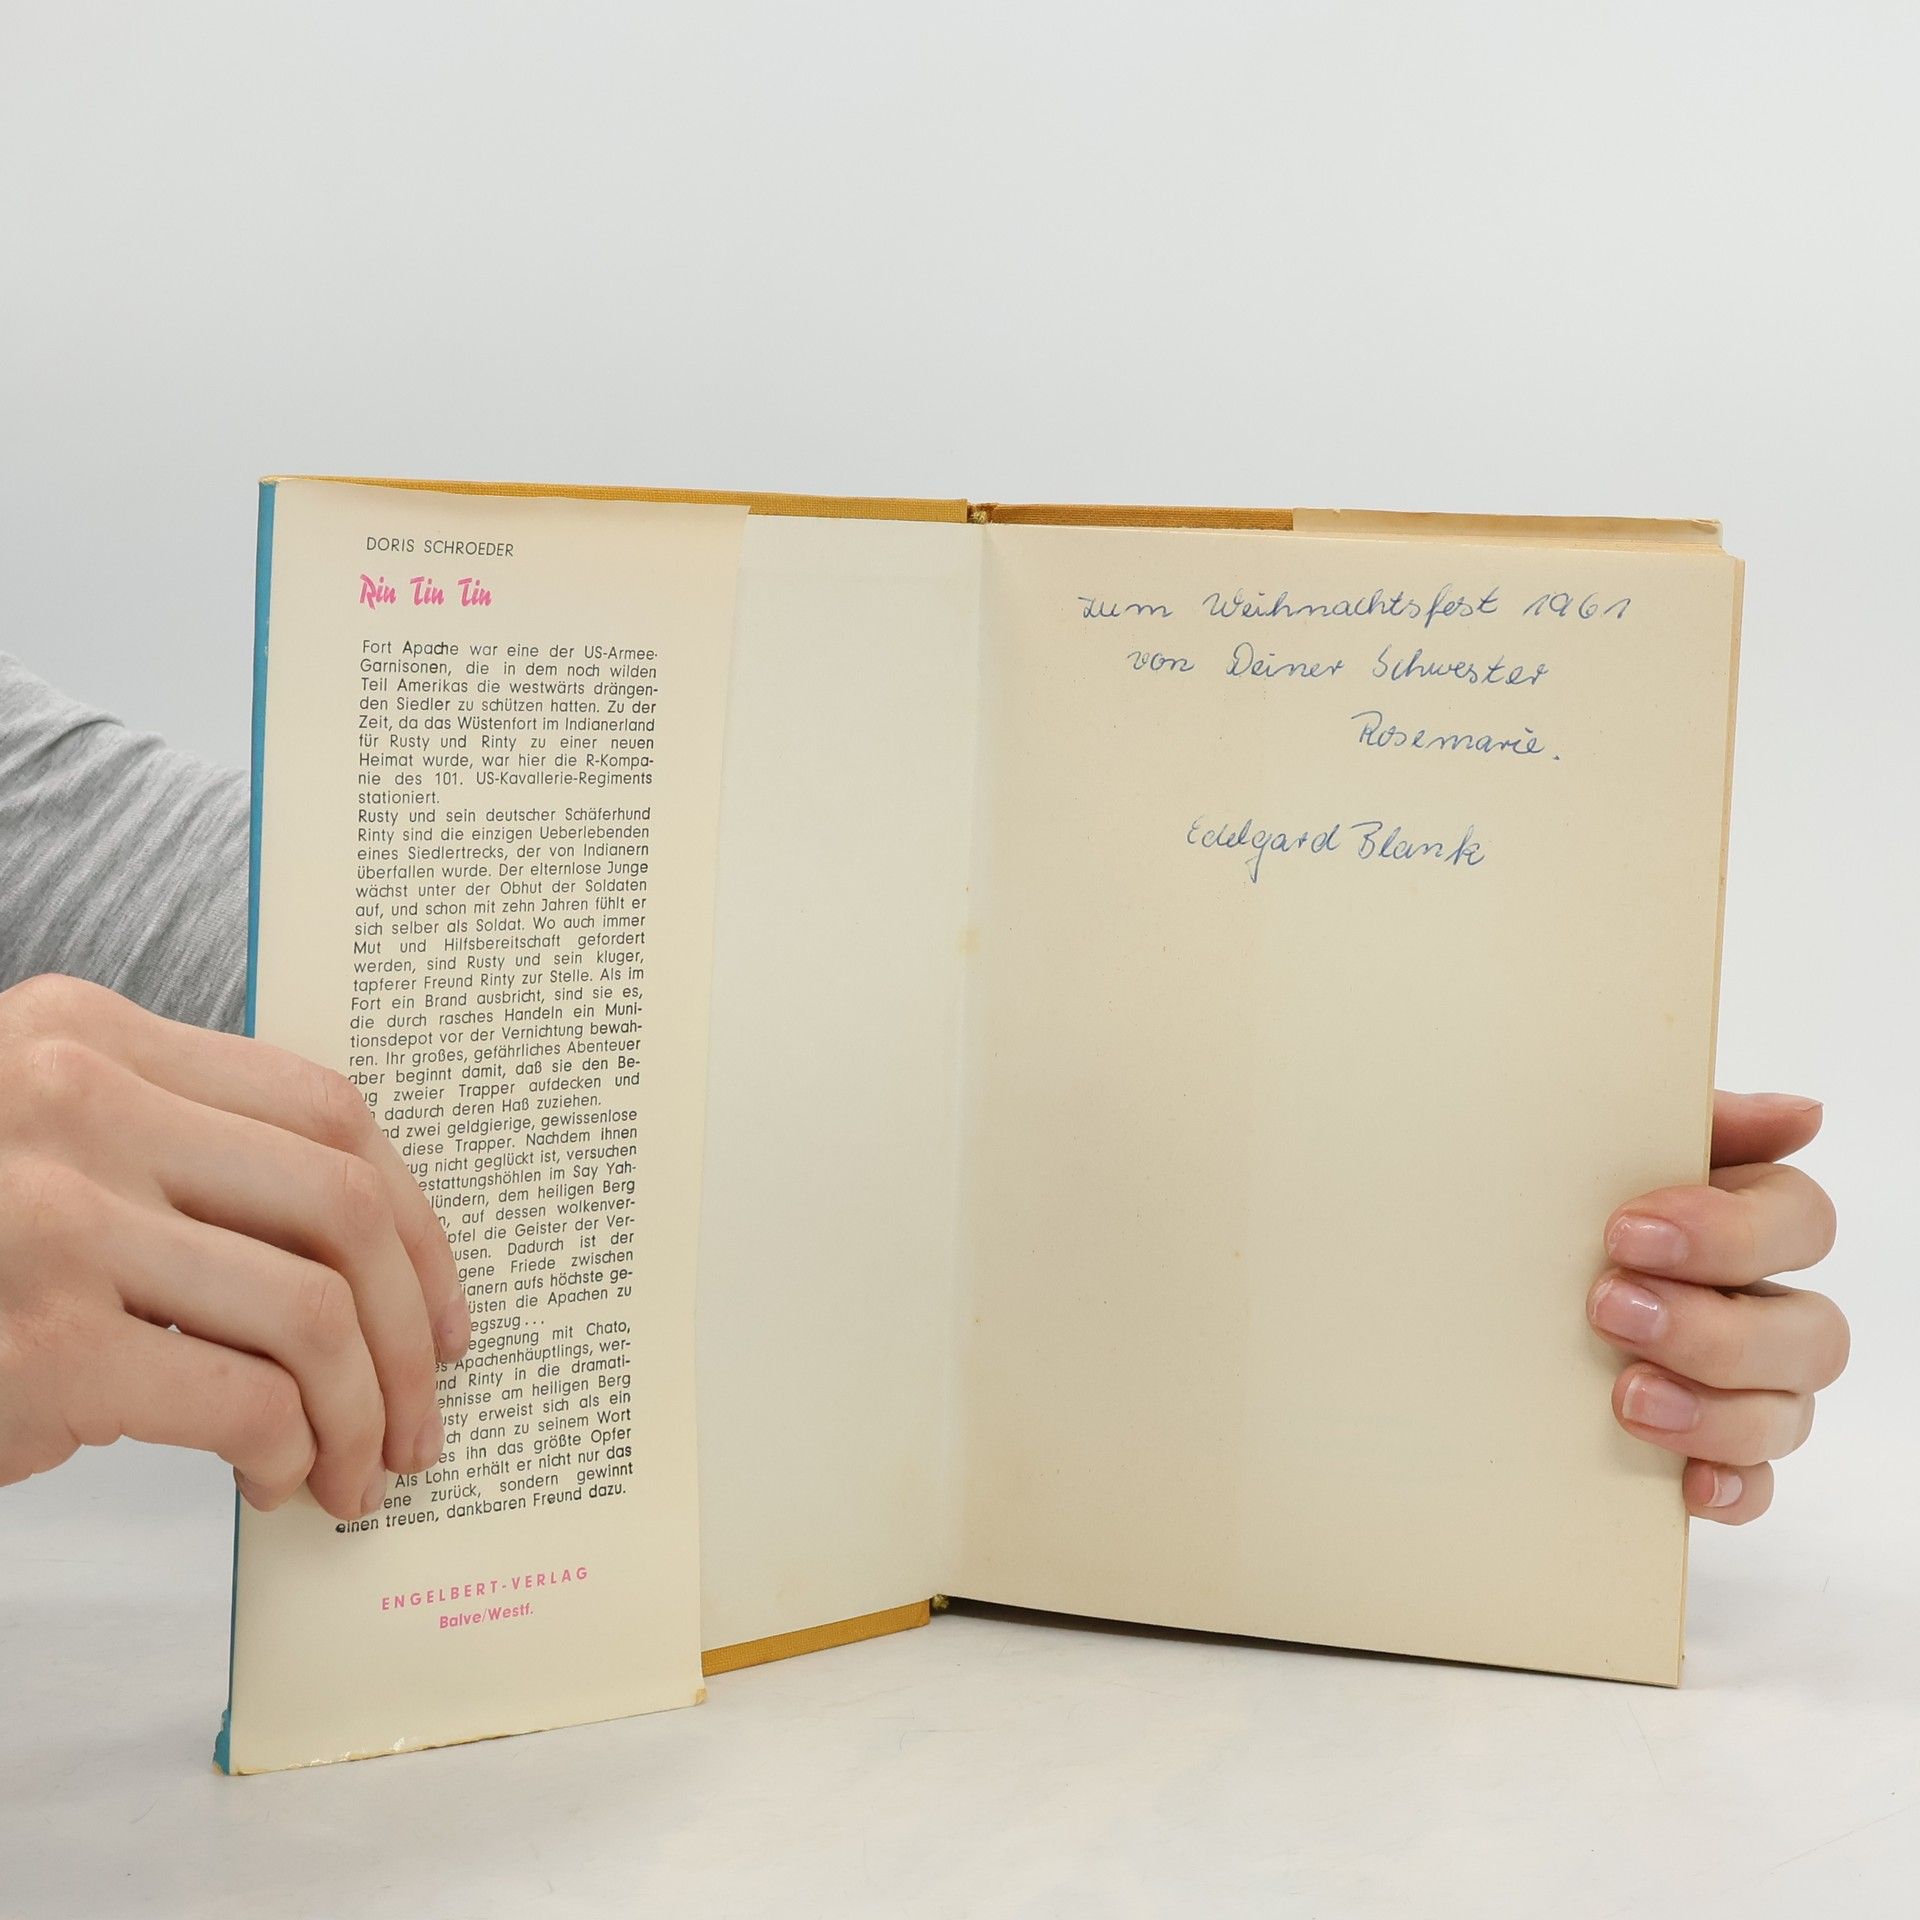 DORIS SCHROEDER
Rin Tin Tin
Fort Apache war eine der US-Armee-
Garnisonen, die in dem noch wilden
Teil Amerikas die westwärts drängen-
den Siedler zu schützen hatten. Zu der
Zeit, da das Wüstenfort im Indianerland
für Rusty und Rinty zu einer neuen
Heimat wurde, war hier die R-Kompa-
nie des 101. US-Kavallerie-Regiments
stationiert.
Rusty und sein deutscher Schäferhund
Rinty sind die einzigen Ueberlebenden
eines Siedlertrecks, der von Indianern
überfallen wurde. Der elternlose Junge
wächst unter der Obhut der Soldaten
auf, und schon mit zehn Jahren fühlt er
sich selber als Soldat. Wo auch immer
Mut und Hilfsbereitschaft gefordert
werden, sind Rusty und sein kluger,
tapferer Freund Rinty zur Stelle. Als im
Fort ein Brand ausbricht, sind sie es,
die durch rasches Handeln ein Muni-
tionsdepot vor der Vernichtung bewah-
ren. Ihr großes, gefährliches Abenteuer
aber beginnt damit, daß sie den Be-
ug zweier Trapper aufdecken und
dadurch deren Haß zuziehen.
nd zwei geldgierige, gewissenlose
diese Trapper. Nachdem ihnen
rug nicht geglückt ist, versuchen
estattungshöhlen im Say Yah-
lündern, dem heiligen Berg
n, auf dessen wolkenver-
pfel die Geister der Ver-
usen. Dadurch ist der
gene Friede zwischen
ianern aufs höchste ge-
üsten die Apachen zu
egszug...
egegnung mit Chato,
es Apachenhäuptlings, wer-
und Rinty in die dramati-
ehnisse am heiligen Berg
usty erweist sich als ein
ch dann zu seinem Wort
es ihn das größte Opfer
Als Lohn erhält er nicht nur das
ene zurück, sondern gewinnt
einen treuen, dankbaren Freund dazu.
ENGELBERT-VERLAG
Balve/Westf.
zum Weihnachtsfest 1961
von Deiner Schwester
Rosemarie.
Edelgard Blank